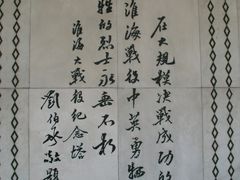 在大规模决战成功的
淮海战役中英勇牺
牲的烈士永垂不朽
淮海大战役纪念塔
刘伯承敬题